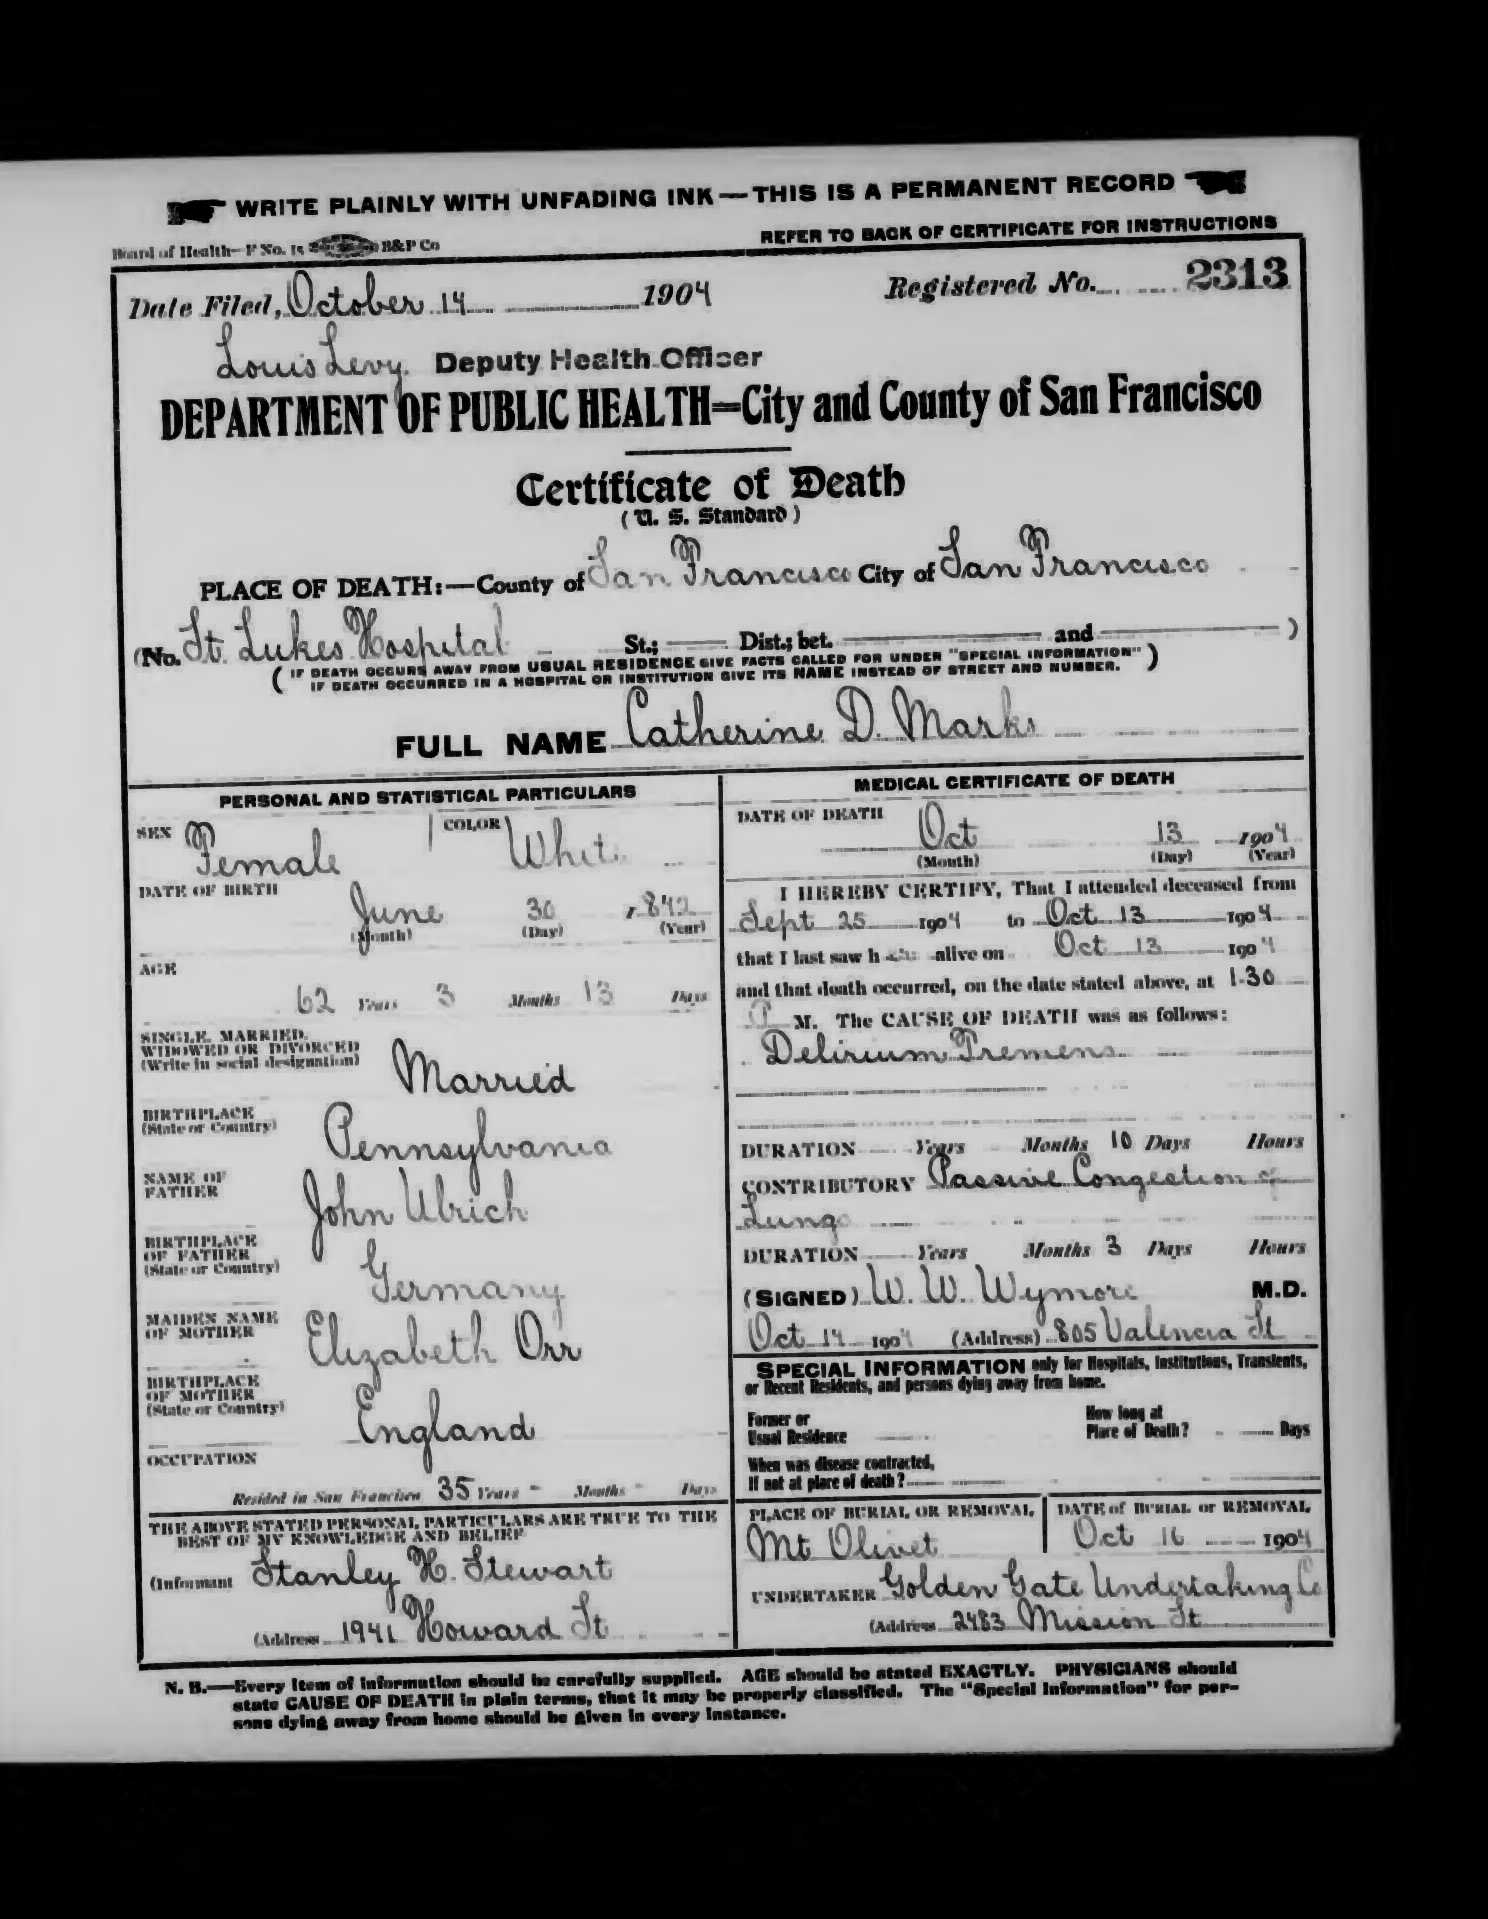 WRITE PLAINLY WITH UNFADING INK — THIS IS A PERMANENT RECORD
Board of Health—F No. 15 B&P Co
REFER TO BACK OF CERTIFICATE FOR INSTRUCTIONS
Date Filed, October 14 1904 Registered No. 2313
Louis Levy. Deputy Health Officer
DEPARTMENT OF PUBLIC HEALTH=City and County of San Francisco
Certificate of Death
(U. S. Standard)
PLACE OF DEATH:—County of San Francisco City of San Francisco
(No. St. Lukes Hospital St.; Dist.; bet. and )
( IF DEATH OCCURS AWAY FROM USUAL RESIDENCE GIVE FACTS CALLED FOR UNDER "SPECIAL INFORMATION" )
IF DEATH OCCURRED IN A HOSPITAL OR INSTITUTION GIVE ITS NAME INSTEAD OF STREET AND NUMBER.
FULL NAME Catherine D. Marks
PERSONAL AND STATISTICAL PARTICULARS
SEX Female COLOR White
DATE OF BIRTH
June 30 1842
(Month) (Day) (Year)
AGE
62 Years 3 Months 13 Days
SINGLE, MARRIED,
WIDOWED OR DIVORCED
(Write in social designation) Married
BIRTHPLACE
(State or Country) Pennsylvania
NAME OF
FATHER John Ulrich
BIRTHPLACE
OF FATHER
(State or Country) Germany
MAIDEN NAME
OF MOTHER Elizabeth Orr
BIRTHPLACE
OF MOTHER
(State or Country) England
OCCUPATION
Resided in San Francisco 35 Years - Months - Days
THE ABOVE STATED PERSONAL PARTICULARS ARE TRUE TO THE
BEST OF MY KNOWLEDGE AND BELIEF
(Informant Stanley H. Stewart
(Address 1941 Howard St
MEDICAL CERTIFICATE OF DEATH
DATE OF DEATH
Oct 13 1904
(Month) (Day) (Year)
I HEREBY CERTIFY, That I attended deceased from
Sept 25 1904 to Oct 13 1904
that I last saw h alive on Oct 13 1904
and that death occurred, on the date stated above, at 1-30
P M. The CAUSE OF DEATH was as follows:
Delirium Tremens
DURATION Years Months 10 Days Hours
CONTRIBUTORY Passive Congestion of
Lungs
DURATION Years Months 3 Days Hours
(SIGNED) W. W. Wymore M.D.
Oct 14 1904 (Address) 805 Valencia St
SPECIAL INFORMATION only for Hospitals, Institutions, Transients,
or Recent Residents, and persons dying away from home.
Former or
Usual Residence
How long at
Place of Death? Days
When was disease contracted,
If not at place of death?
PLACE OF BURIAL OR REMOVAL
Mt Olivet
DATE of BURIAL or REMOVAL
Oct 16 1904
UNDERTAKER Golden Gate Undertaking Co
(Address 2483 Mission St
N. B.—Every item of information should be carefully supplied. AGE should be stated EXACTLY. PHYSICIANS should
state CAUSE OF DEATH in plain terms, that it may be properly classified. The "Special Information" for per-
sons dying away from home should be given in every instance.